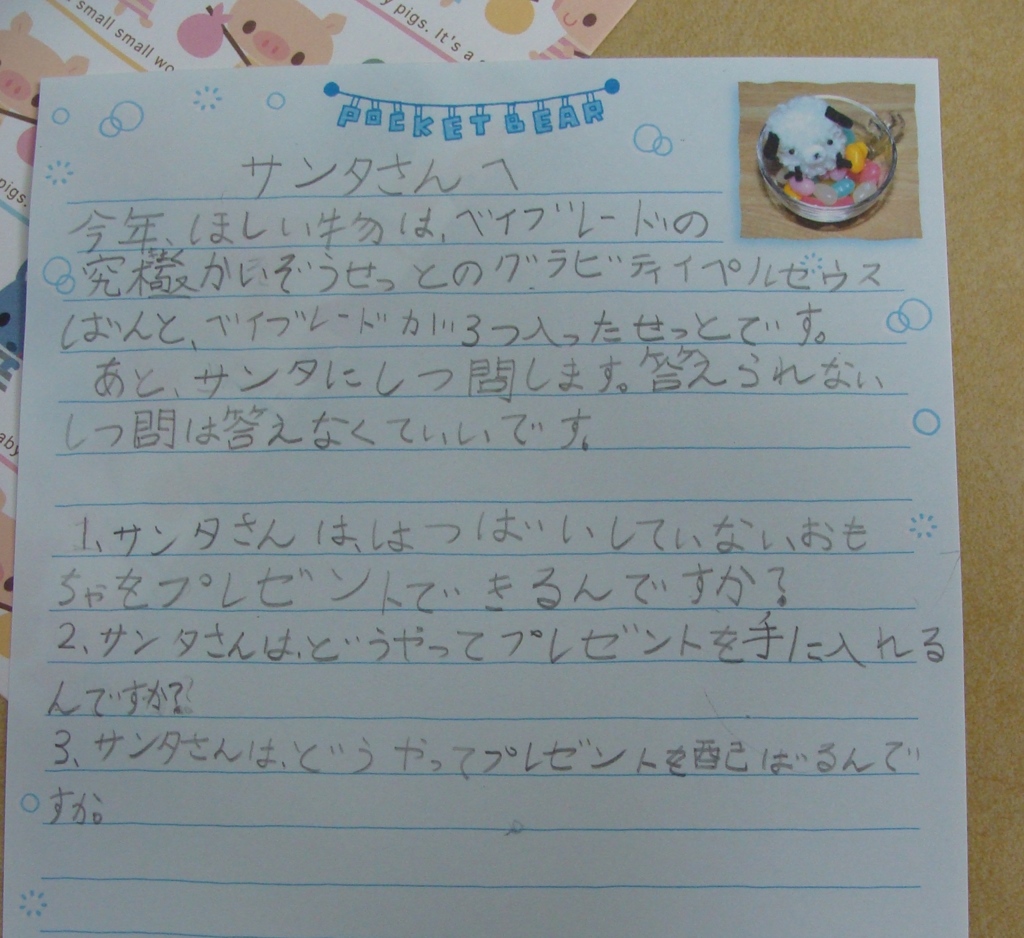 small small wo
y pigs. It's a
pigs.
aby
POCKET BEAR
サンタさんへ
今年、ほしい物は、ベイブレードの
究極かいぞうせっとのグラビティイペルゼウス
ばんと、ベイブレードが3つ入ったせっとです。
あと、サンタにしつ問します。答えられない
しつ問は答えなくていいです。
1、サンタさんは、はつばいしていないおも
ちゃをプレゼントできるんですか?
2、サンタさんは、どうやってプレゼントを手に入れる
んですか?
3、サンタさんは、どうやってプレゼントを配ばるんで
すか。